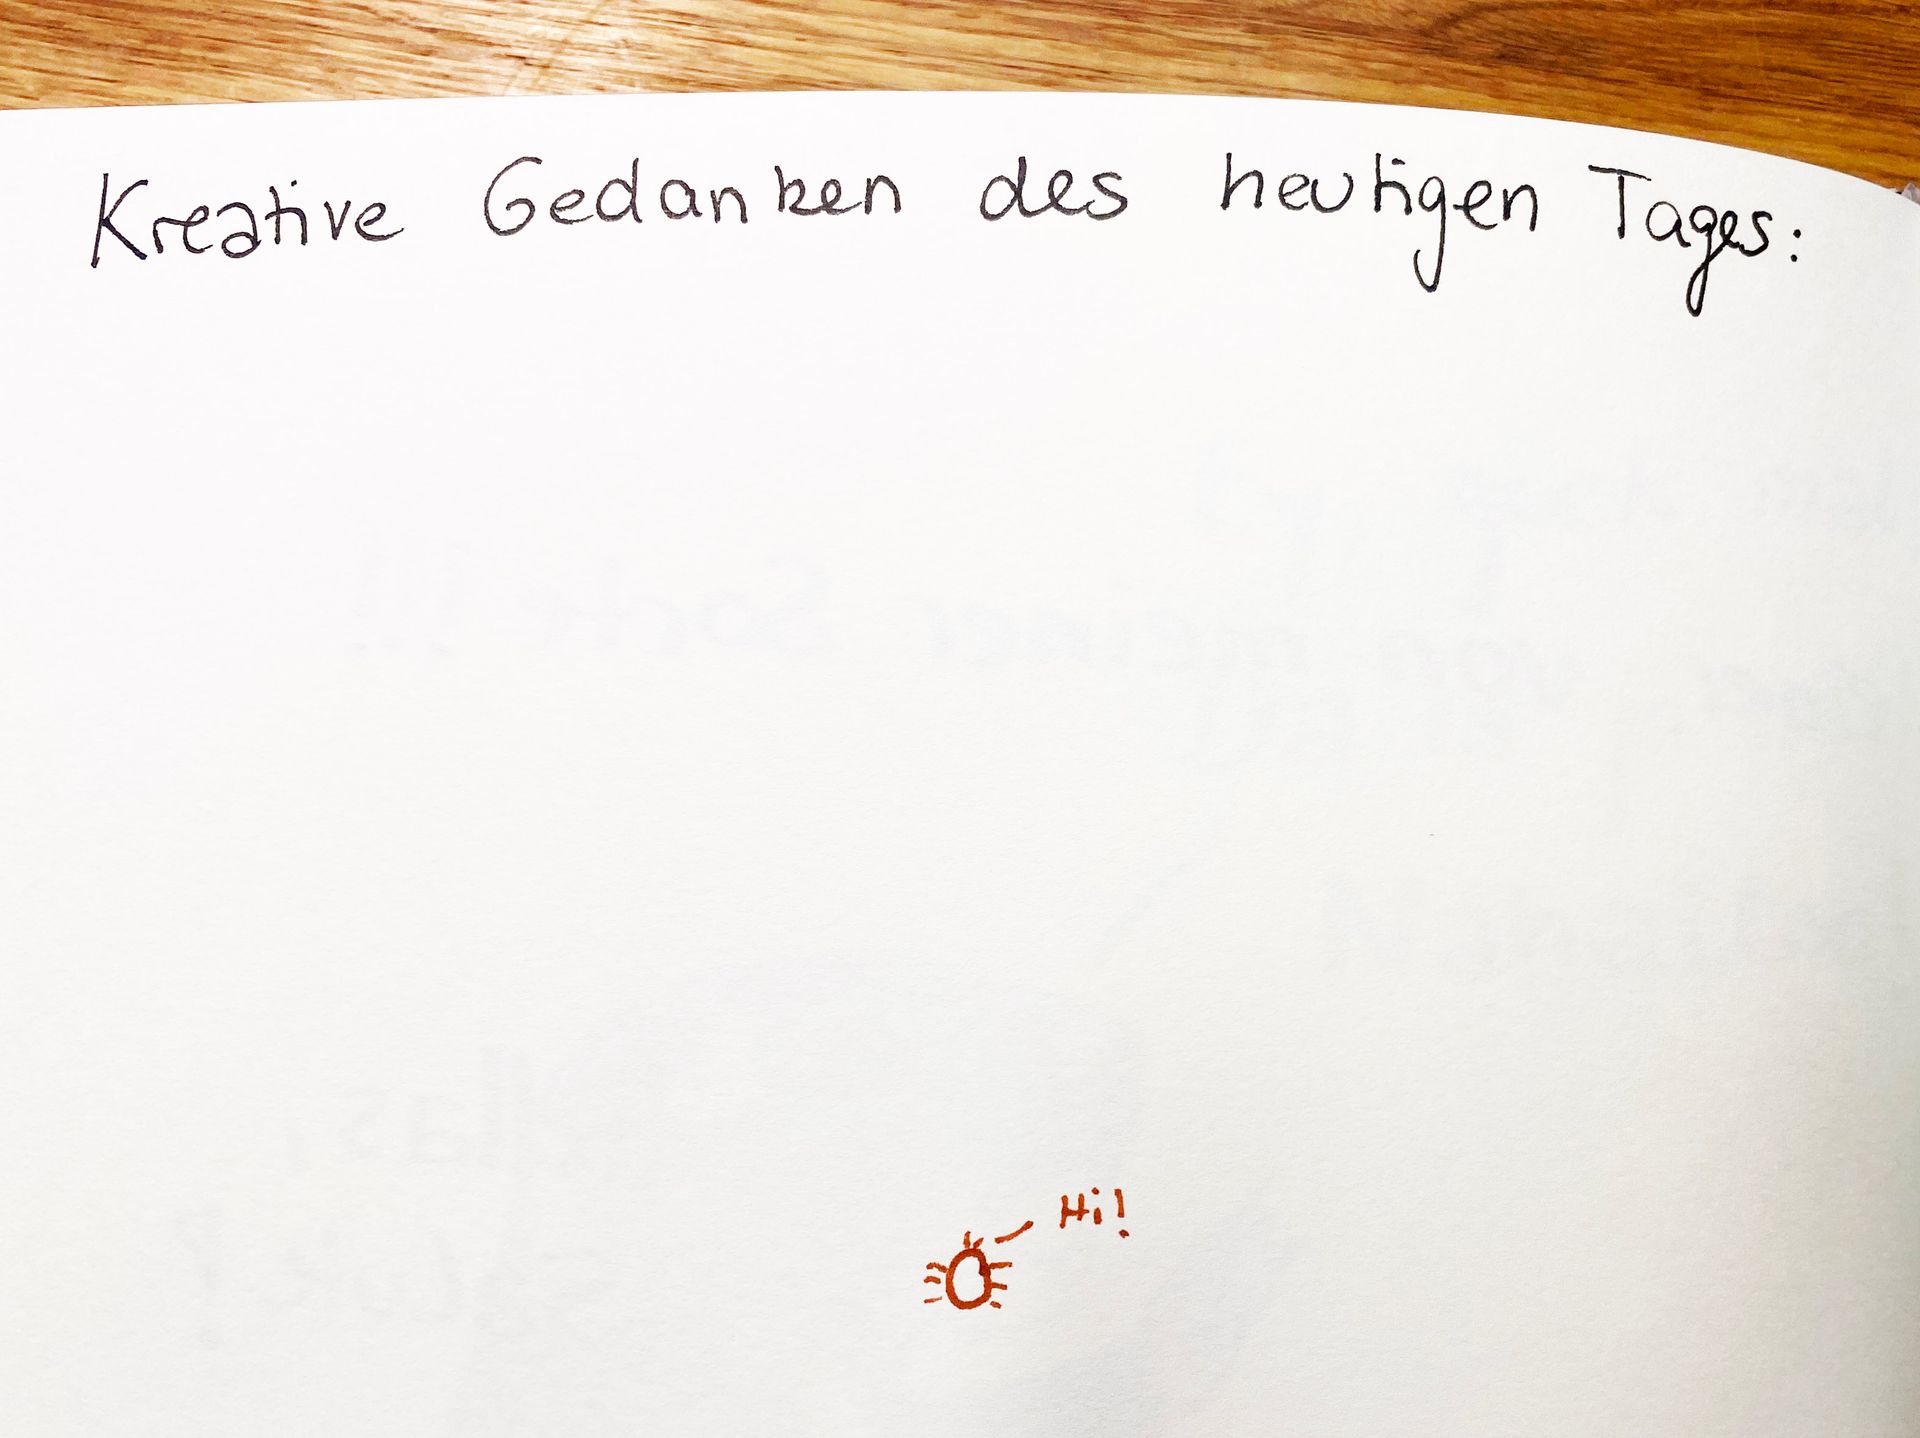 Kreative Gedanken des heutigen Tages:
Hi!